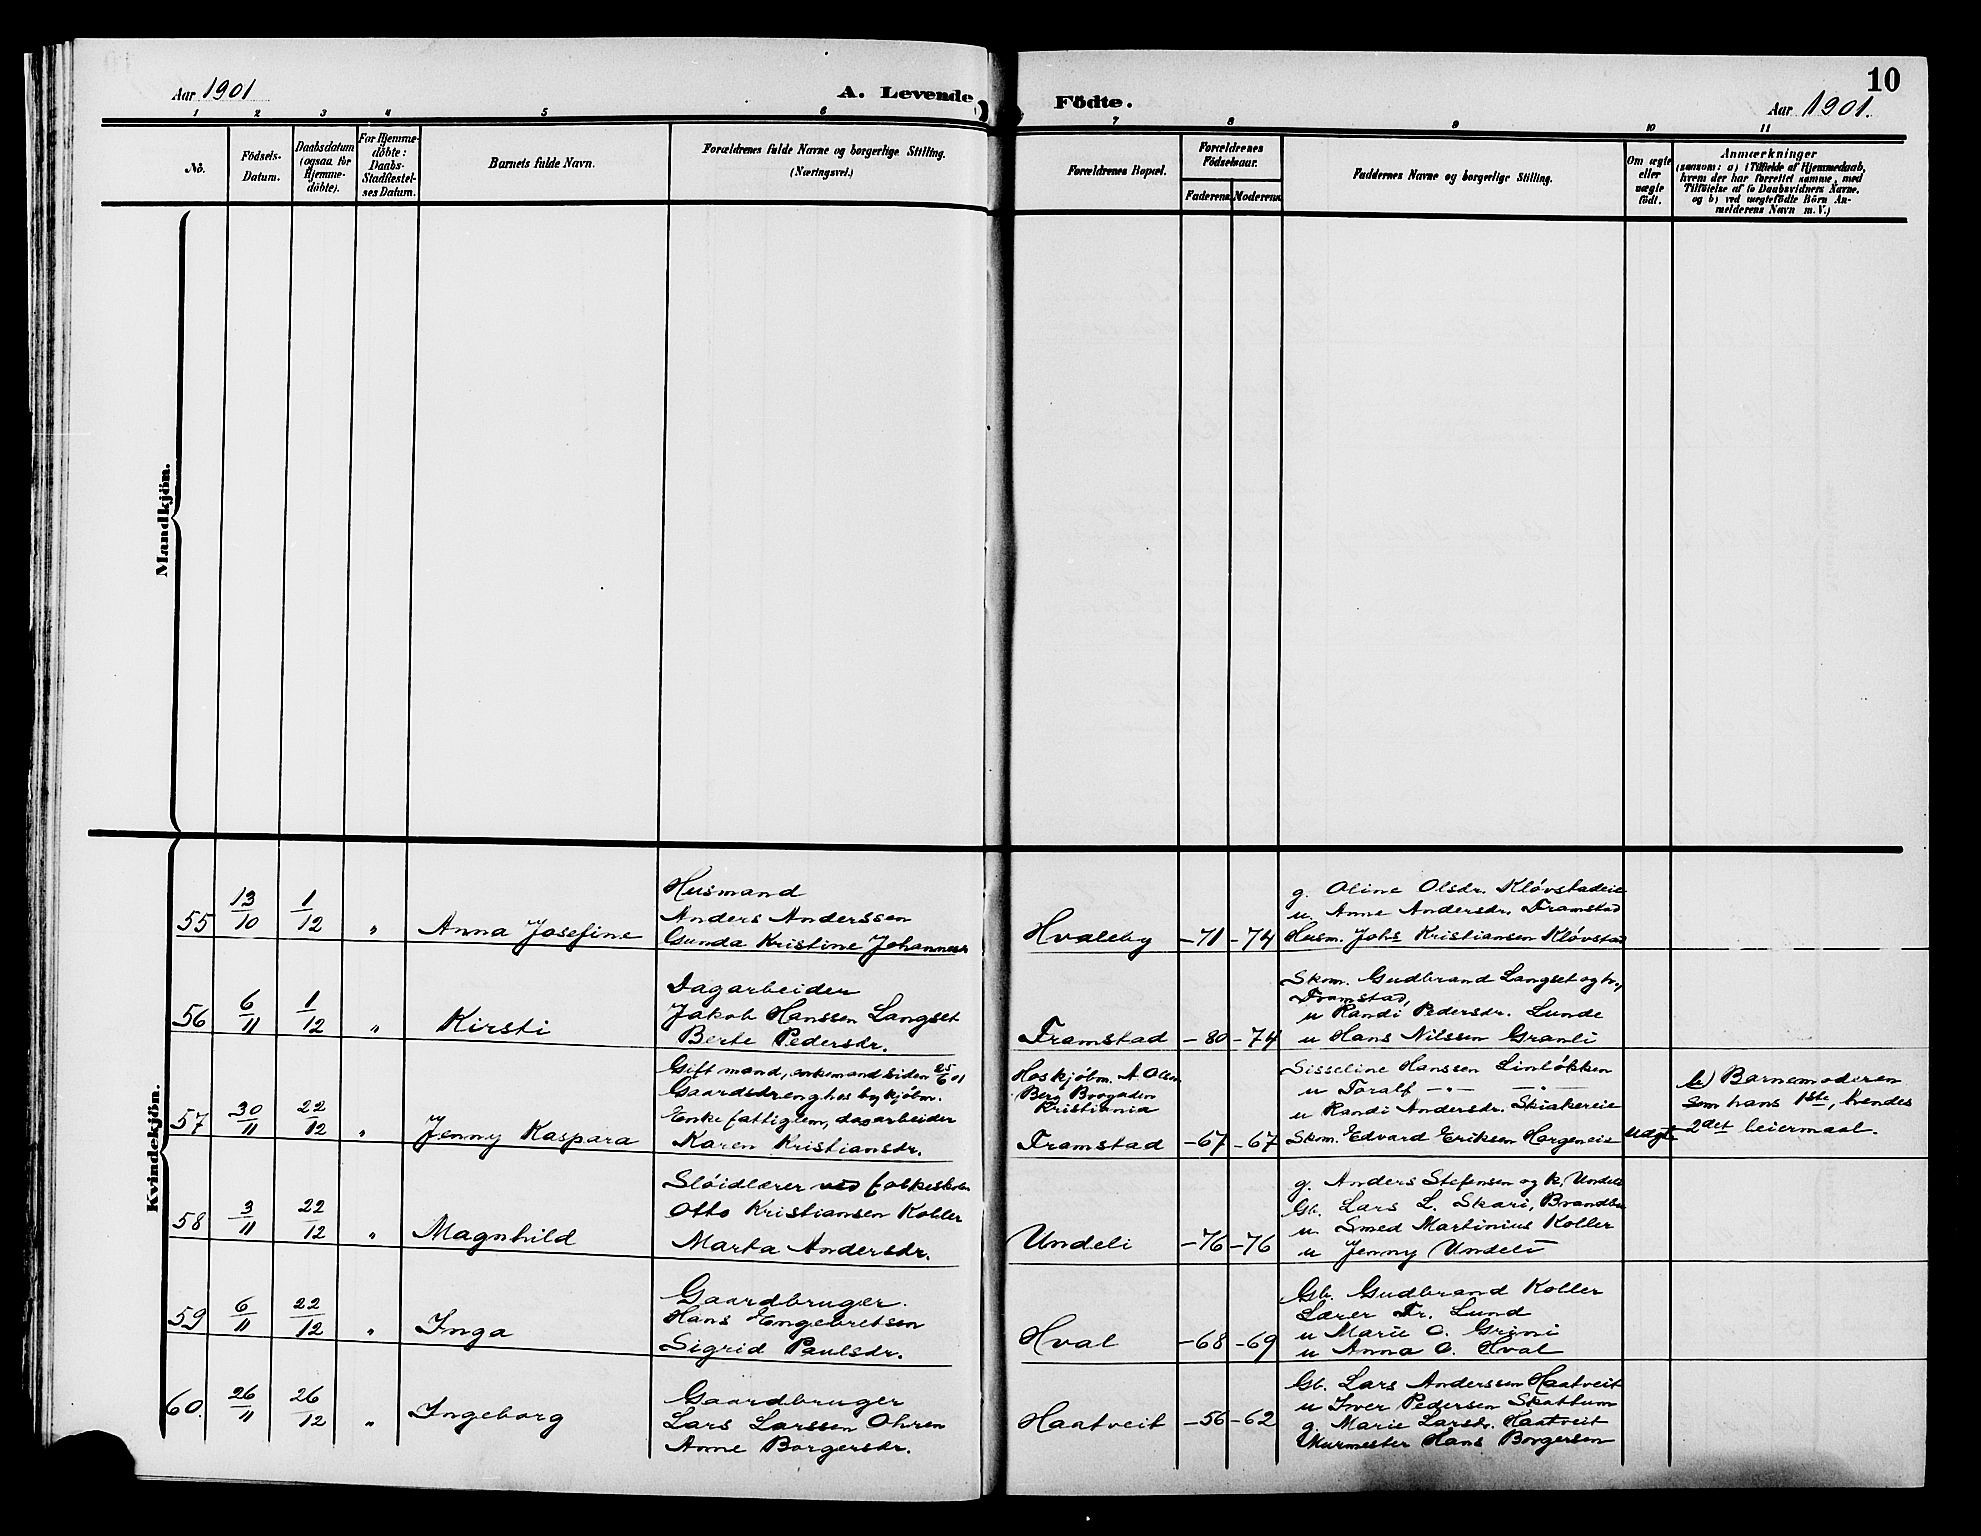 10
Aar 1901
A. Levende
Födte.
Aar 1901.
1 2 3 4 5 6 7 8 9 10 11
No.
Födsels-
Datum.
Daabsdatum
(ogsaa for
Hjemme-
döbte).
For Hjemme-
döbte:
Daabs-
Stadfæstel-
ses Datum.
Barnets fulde Navn.
Forældrenes fulde Navne og borgerlige Stilling.
(Næringsvei.)
Forældrenes Bopæl.
Forældrenes
Födselsaar.
Faderens
Moderens
Faddernes Navne og borgerlige Stilling.
Om ægte
eller
uægte
födt.
Anmærkninger
(saasom: a) i Tilfælde af Hjemmedaab,
hvem der har forrettet samme, med
Tilföielse af to Daabsvidners Navne.
og b) ved uægtefödte Börn An-
melderens Navn m. V.)
Mandkjön.
Kvindekjön.
55
13/10
1/12
"
Anna Josefine
Husmand
Anders Anderssen
Gunda Kristine Johannesdr
Hvaleby
-71
-74
g. Oline Olsdr. Kløvstadeie
u. Anne Andersdr. Framstad
Husm. Johs Kristiansen Kløvstad
56
6/11
1/12
"
Kirsti
Dagarbeider
Jakob Hanssen Langset
Berte Pedersdr.
Framstad
-80
-74
Skom. Gudbrand Langset og h.,
Framstad,
u Randi Pedersdr. Lunde
u Hans Nilssen Granli
57
30/11
22/12
"
Jenny Kaspara
Gift mand, enkemand siden 25/6 01
Gaardsdreng hos bykjøbm.
Enke fattiglem, dagarbeider
Karen Kristiansdr.
Hos kjøbm. A. Olsen
Berg
Kristiania
Framstad
-67
-67
Sisseline Hanssen Linløkken
u Toralf -"- -"-
u Randi Andersdr. Skiakereie
Skom. Edvard Eriksen Horgeneie
Uægte
b) Barnemoderen
som hans 1ste, hendes
2det leiermaal.
58
3/11
22/12
"
Magnhild
Sløidlærer ved folkeskolen
Otto Kristiansen Koller
Marta Andersdr.
Undeli
-76
-76
g. Anders Stefensen og k. Undeli
Gb. Lars L. Skari, Brandbu
u. Smed Martinius Koller
u Jenny Undeli
59
6/11
22/12
"
Inga
Gaardbruger.
Hans Engebretsen
Sigrid Paulsdr.
Hval
-68
-69
Gb. Gudbrand Koller
Lærer Fr. Lund
u Marie O. Grini
u Anna O. Hval
60.
26/11
26/12
"
Ingeborg
Gaardbruger
Lars Larssen Ohren
Anne Borgersdr.
Haatveit
-56
-62
Gb. Lars Anderssen Haatveit
u Iver Pedersen Skattum
g. Marie Larsdr. Haatveit
Murmester Hans Borgersen